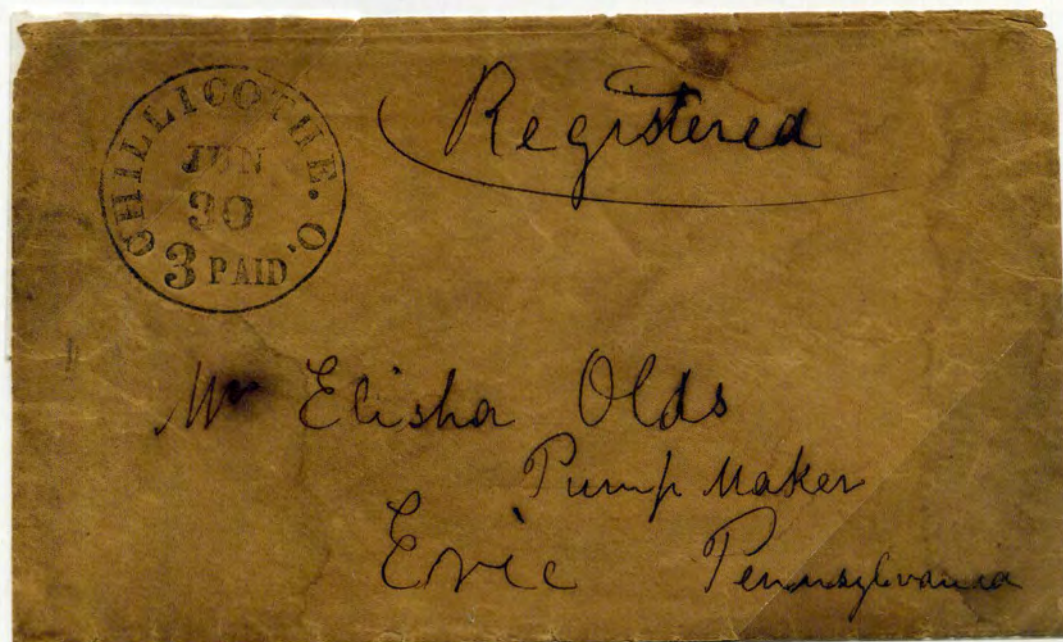 CHILLICOTHE. O.
JUN
30
3 PAID
Registered
Mr Elisha Olds
Pump Maker
Erie Pennsylvania